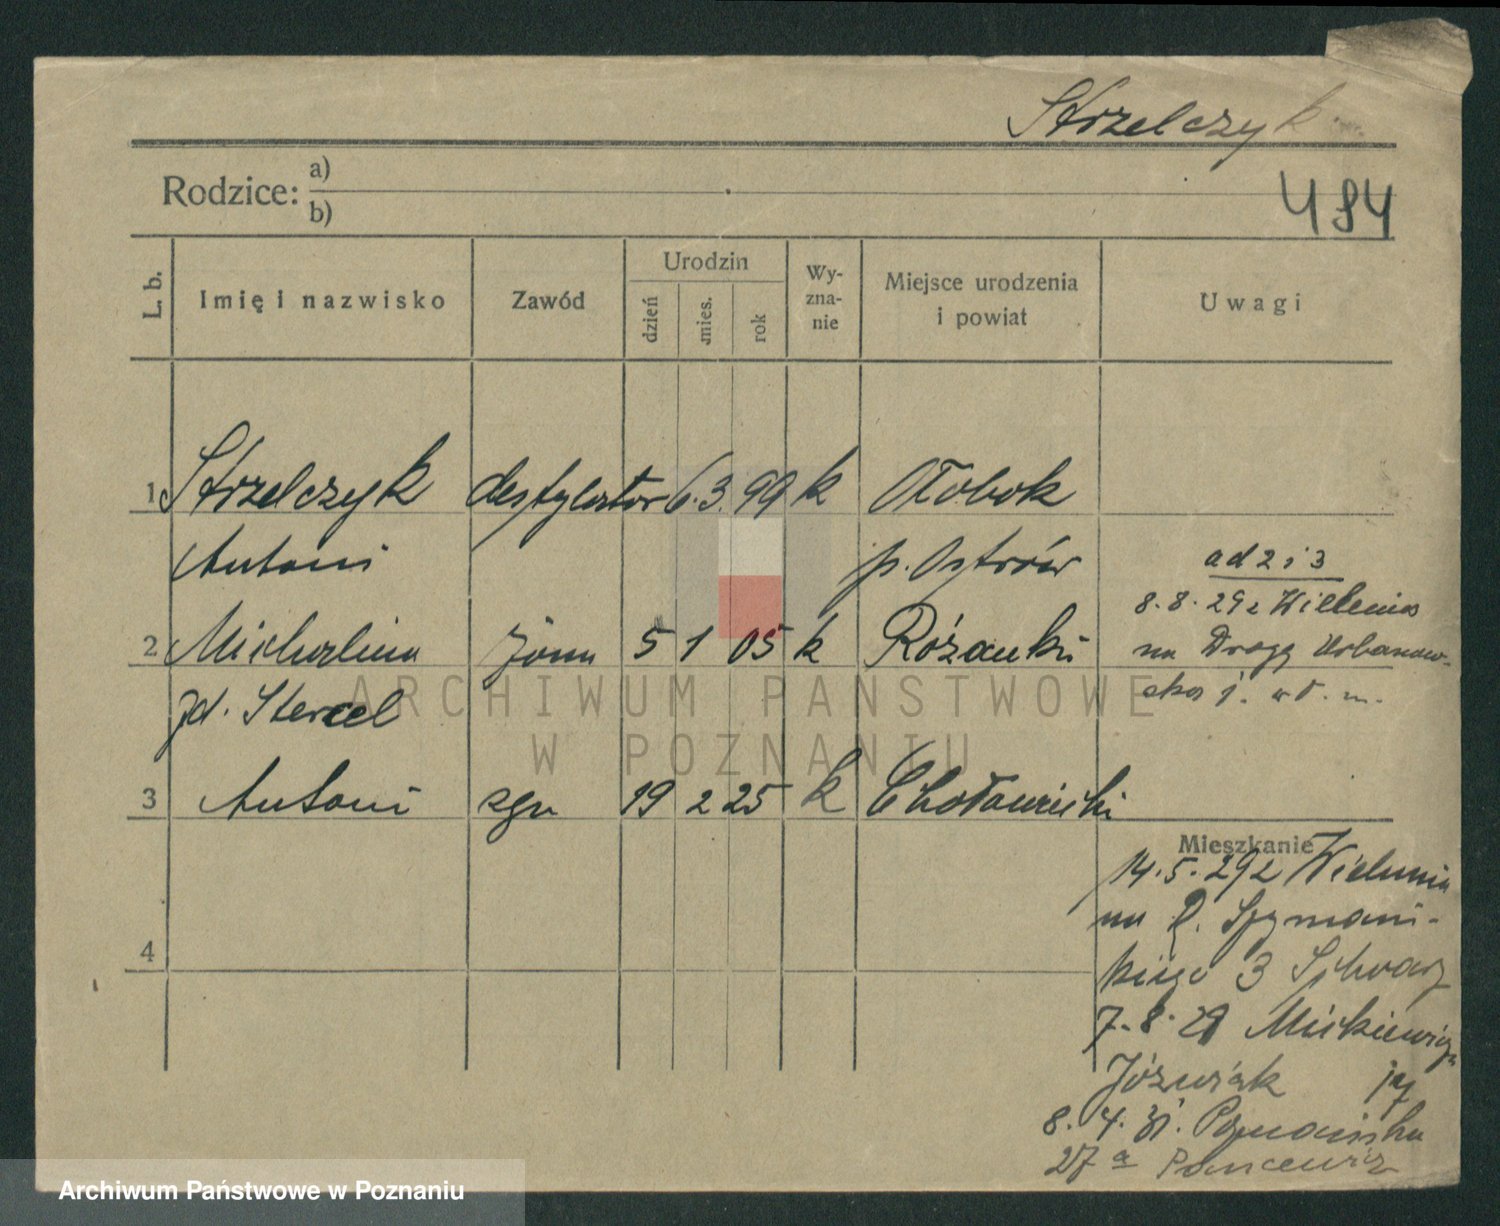 Strzelczyk
Rodzice: a)
b)
484
L. b.
Imię i nazwisko
Zawód
Urodzin
dzień
mies.
rok
Wy-
zna-
nie
Miejsce urodzenia
i powiat
Uwagi
1 Strzelczyk destylator 6. 3. 99 k Ołobok
Antoni p. Ostrów
2 Michalina żona 5 1 05 k Różanki
zd. Stercel
3 Antoni syn 19 2 25 k
4
ad 2 i 3
8.8.29 z Wielunia
na Drogę Urbanow-
ską j. w.
Mieszkanie
14.5.29 z Wielunia
na R. Szymań-
skiego 3
7.8.29 Mickiewicza
Jóźwiak
8.4.31. Poznańska
27a
ARCHIWUM PAŃSTWOWE
W POZNANIU
Archiwum Państwowe w Poznaniu